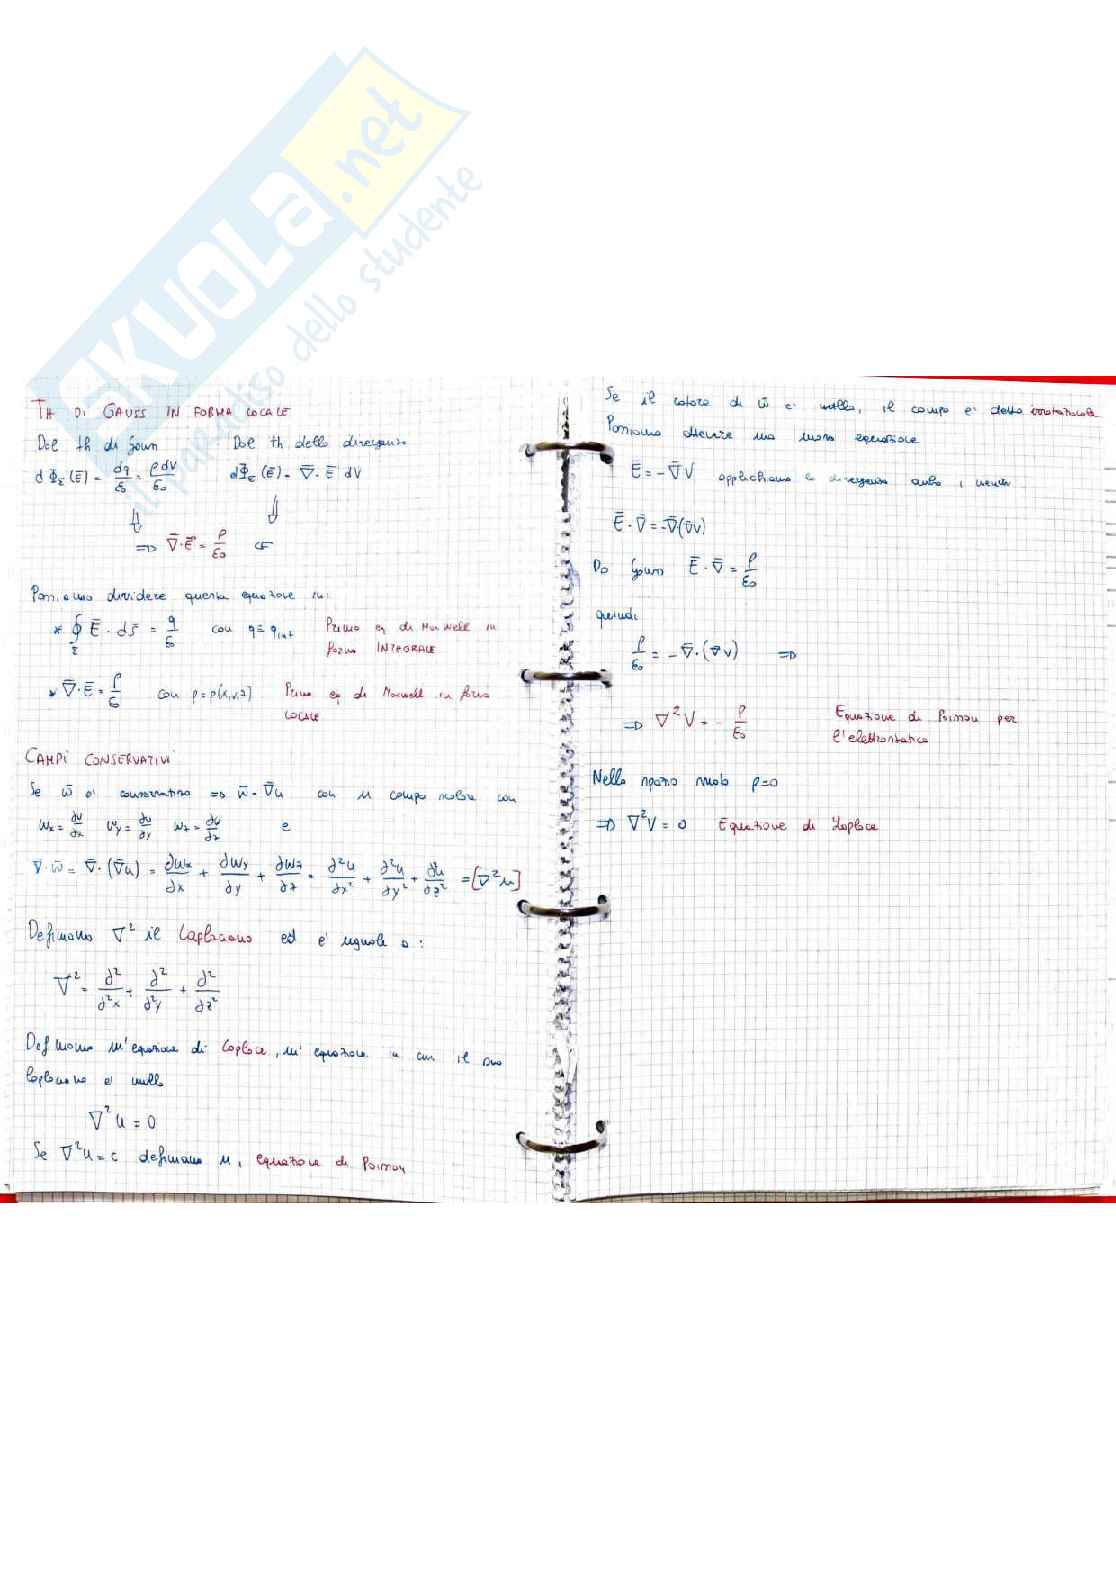 SKUOLA.net
il paradiso dello studente
TH DI GAUSS IN FORMA LOCALE
Dal th di Gauss Dal th della divergenza
dΦ_Σ(Ē) = dq/ε₀ = ρdV/ε₀ dΦ_Σ(Ē) = ∇̄·Ē dV
⇓ ⇓
=> ∇̄·Ē = ρ/ε₀ <=
Possiamo dividere questa equazione in:
* ∮_Σ Ē·ds̄ = q/ε₀ con q = q_int Prima eq di Maxwell in
forma INTEGRALE
* ∇̄·Ē = ρ/ε₀ con ρ=ρ(x,y,z) Prima eq di Maxwell in forma
LOCALE
CAMPI CONSERVATIVI
Se w̄ è conservativo => w̄ = ∇̄u con u campo scalare con
wx = ∂u/∂x wy = ∂u/∂y wz = ∂u/∂z e
∇·w̄ = ∇̄·(∇̄u) = ∂wx/∂x + ∂wy/∂y + ∂wz/∂z = ∂²u/∂x² + ∂²u/∂y² + ∂²u/∂z² = [∇²u]
Definiamo ∇² il Laplaciano ed è uguale a:
∇² = ∂²/∂²x + ∂²/∂²y + ∂²/∂z²
Definiamo un'equazione di Laplace, un'equazione in cui il suo
laplaciano è nullo
∇²u = 0
Se ∇²u = c definiamo equazione di Poisson
Se il rotore di w̄ è nullo, il campo è detto irrotazionale
Possiamo ottenere una nuova equazione
Ē = -∇̄V applichiamo la divergenza ambo i membri
Ē·∇̄ = -∇̄·(∇̄V)
Da Gauss Ē·∇̄ = ρ/ε₀
quindi
ρ/ε₀ = -∇̄·(∇̄V) =>
=> ∇²V = -ρ/ε₀ Equazione di Poisson per
l'elettrostatica
Nello spazio vuoto ρ=0
=> ∇²V = 0 Equazione di Laplace